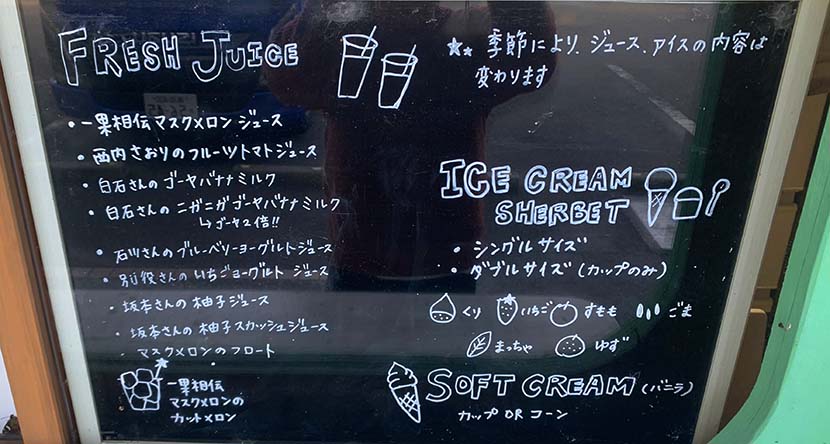 FRESH JUICE
・一果相伝マスクメロンジュース
・西内さおりのフルーツトマトジュース
・白石さんのゴーヤバナナミルク
・白石さんのニガニガゴーヤバナナミルク
↳ゴーヤ2倍!!
・石川さんのブルーベリーヨーグルトジュース
・別役さんのいちごヨーグルトジュース
・坂本さんの柚子ジュース
・坂本さんの柚子スカッシュジュース
・マスクメロンのフロート
一果相伝
マスクメロンの
カットメロン
★★ 季節により、ジュース、アイスの内容は
変わります
ICE CREAM
SHERBET
・シングルサイズ
・ダブルサイズ(カップのみ)
くり いちご すもも ごま
まっちゃ ゆず
SOFT CREAM(バニラ)
カップ OR コーン